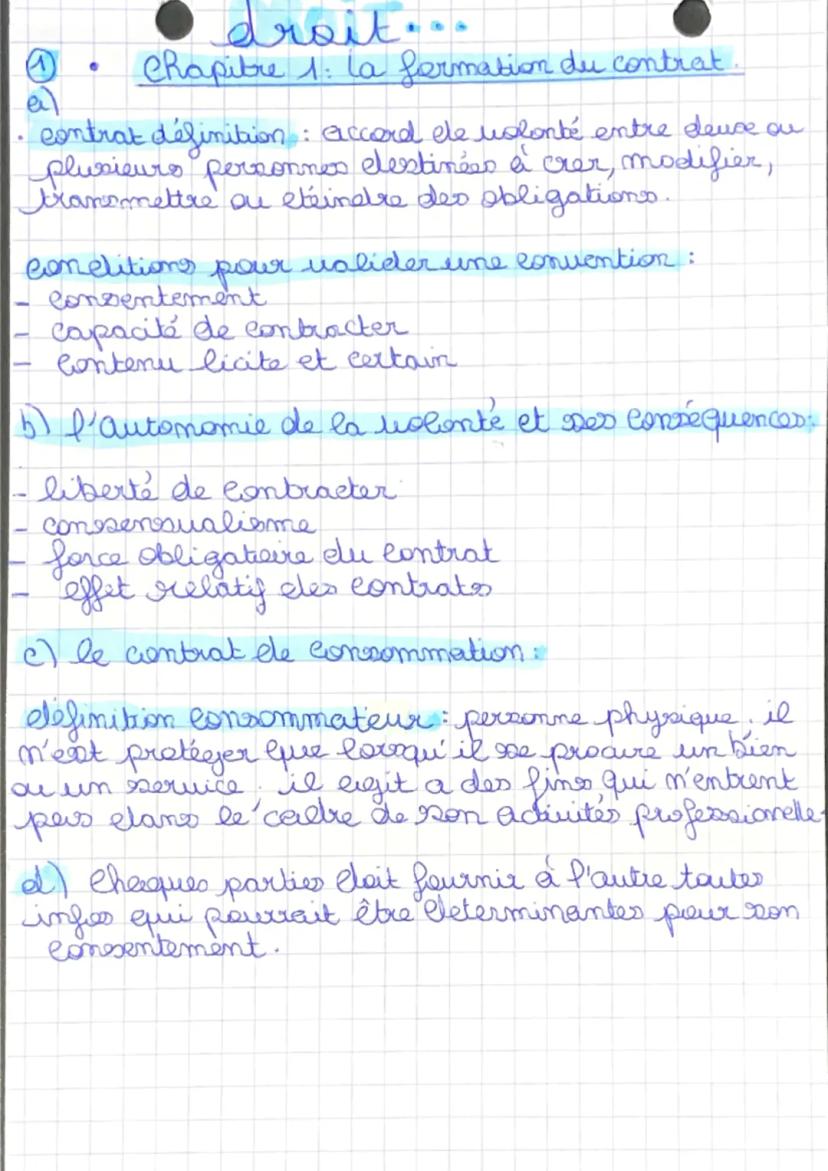 droit...
① • Chapitre 1: la formation du contrat.
a)
. contrat définition : accord de volonté entre deux ou
plusieurs personnes destinées à crer, modifier,
transmettre ou eteindre des obligations.
conditions pour valider une convention :
- consentement
- capacité de contracter
- contenu licite et certain
b) l'automomie de la volonté et ses conséquences:
- liberté de contracter
- consensualisme
- force obligatoire du contrat
- effet relatif des contrats
c) le contrat de consommation:
définition consommateur : personne physique. il
n'est protéger que lorsqu'il se procure un bien
ou un service. il agit a des fins qui n'entrent
pas dans le cadre de son activités professionelle.
d) chaques parties doit fournir à l'autre toutes
infos qui pourrait être determinantes pour son
consentement.